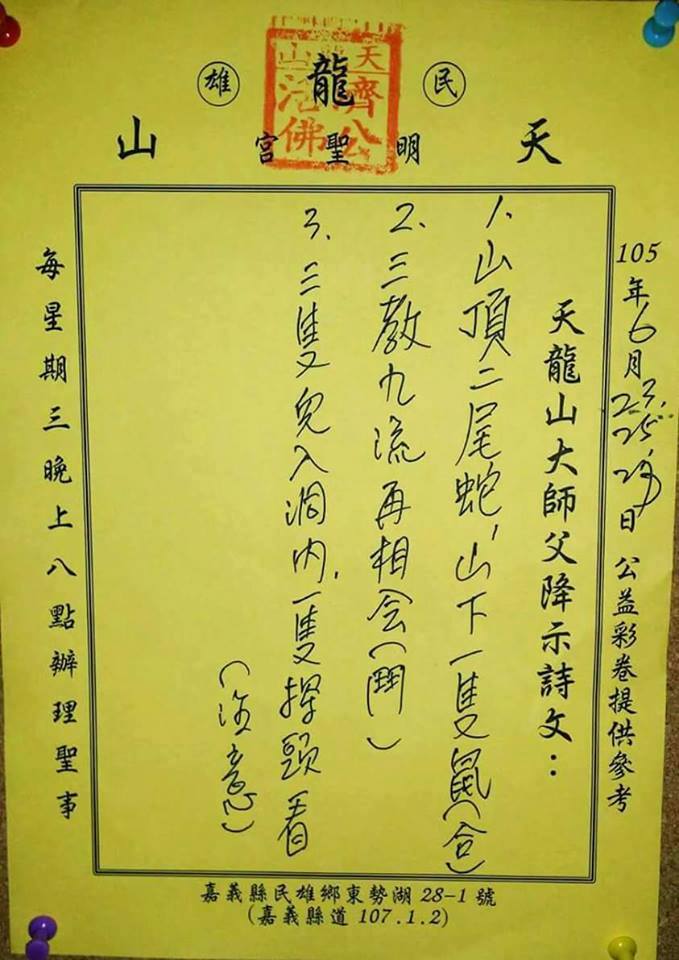 民龍雄
天明聖宮山
天山
濟公
活佛
105年6月23.25.日 公益彩卷提供參考
天龍山大師父降示詩文：
1.山頂二尾蛇,山下一隻鼠(合)
2.三教九流再相会(鬥)
3.三隻兔入洞内.一隻探頭看
(注意)
每星期三晚上八點辦理聖事
嘉義縣民雄鄉東勢湖28-1號
(嘉義縣道107.1.2)